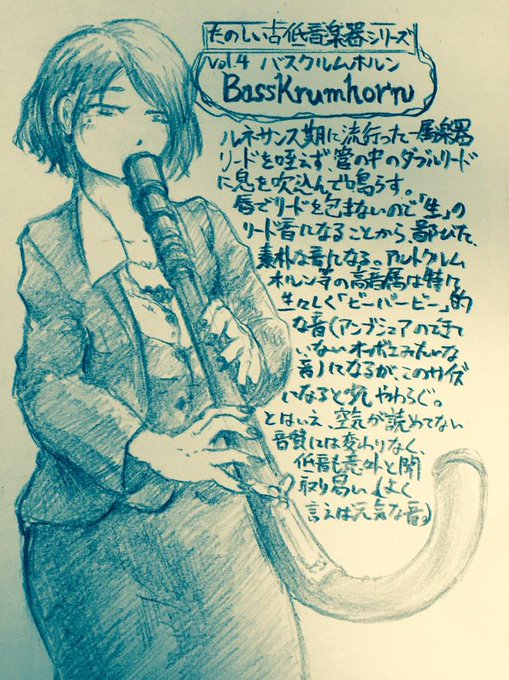 たのしい古低音楽器シリーズ
vol.4 バスクルムホルン
BassKrumhorn
ルネサンス期に流行った管楽器
リードを咥えず、管の中のダブルリード
に息を吹込んで鳴らす。
唇でリードを包まないので「生」の
リード音になることから、鄙びた、
素朴な音になる。アルトクルム
ホルン等の高音属は特に
生々しく「ビーバービー」的
な音(アンブシュアのできて
いないオーボエみたいな
音)になるが、このサイズ
になると少しやわらぐ。
とはいえ、空気が読めてない
音質には変わりなく、
低音も意外と聞
取り易い(よく
言えば元気な音)